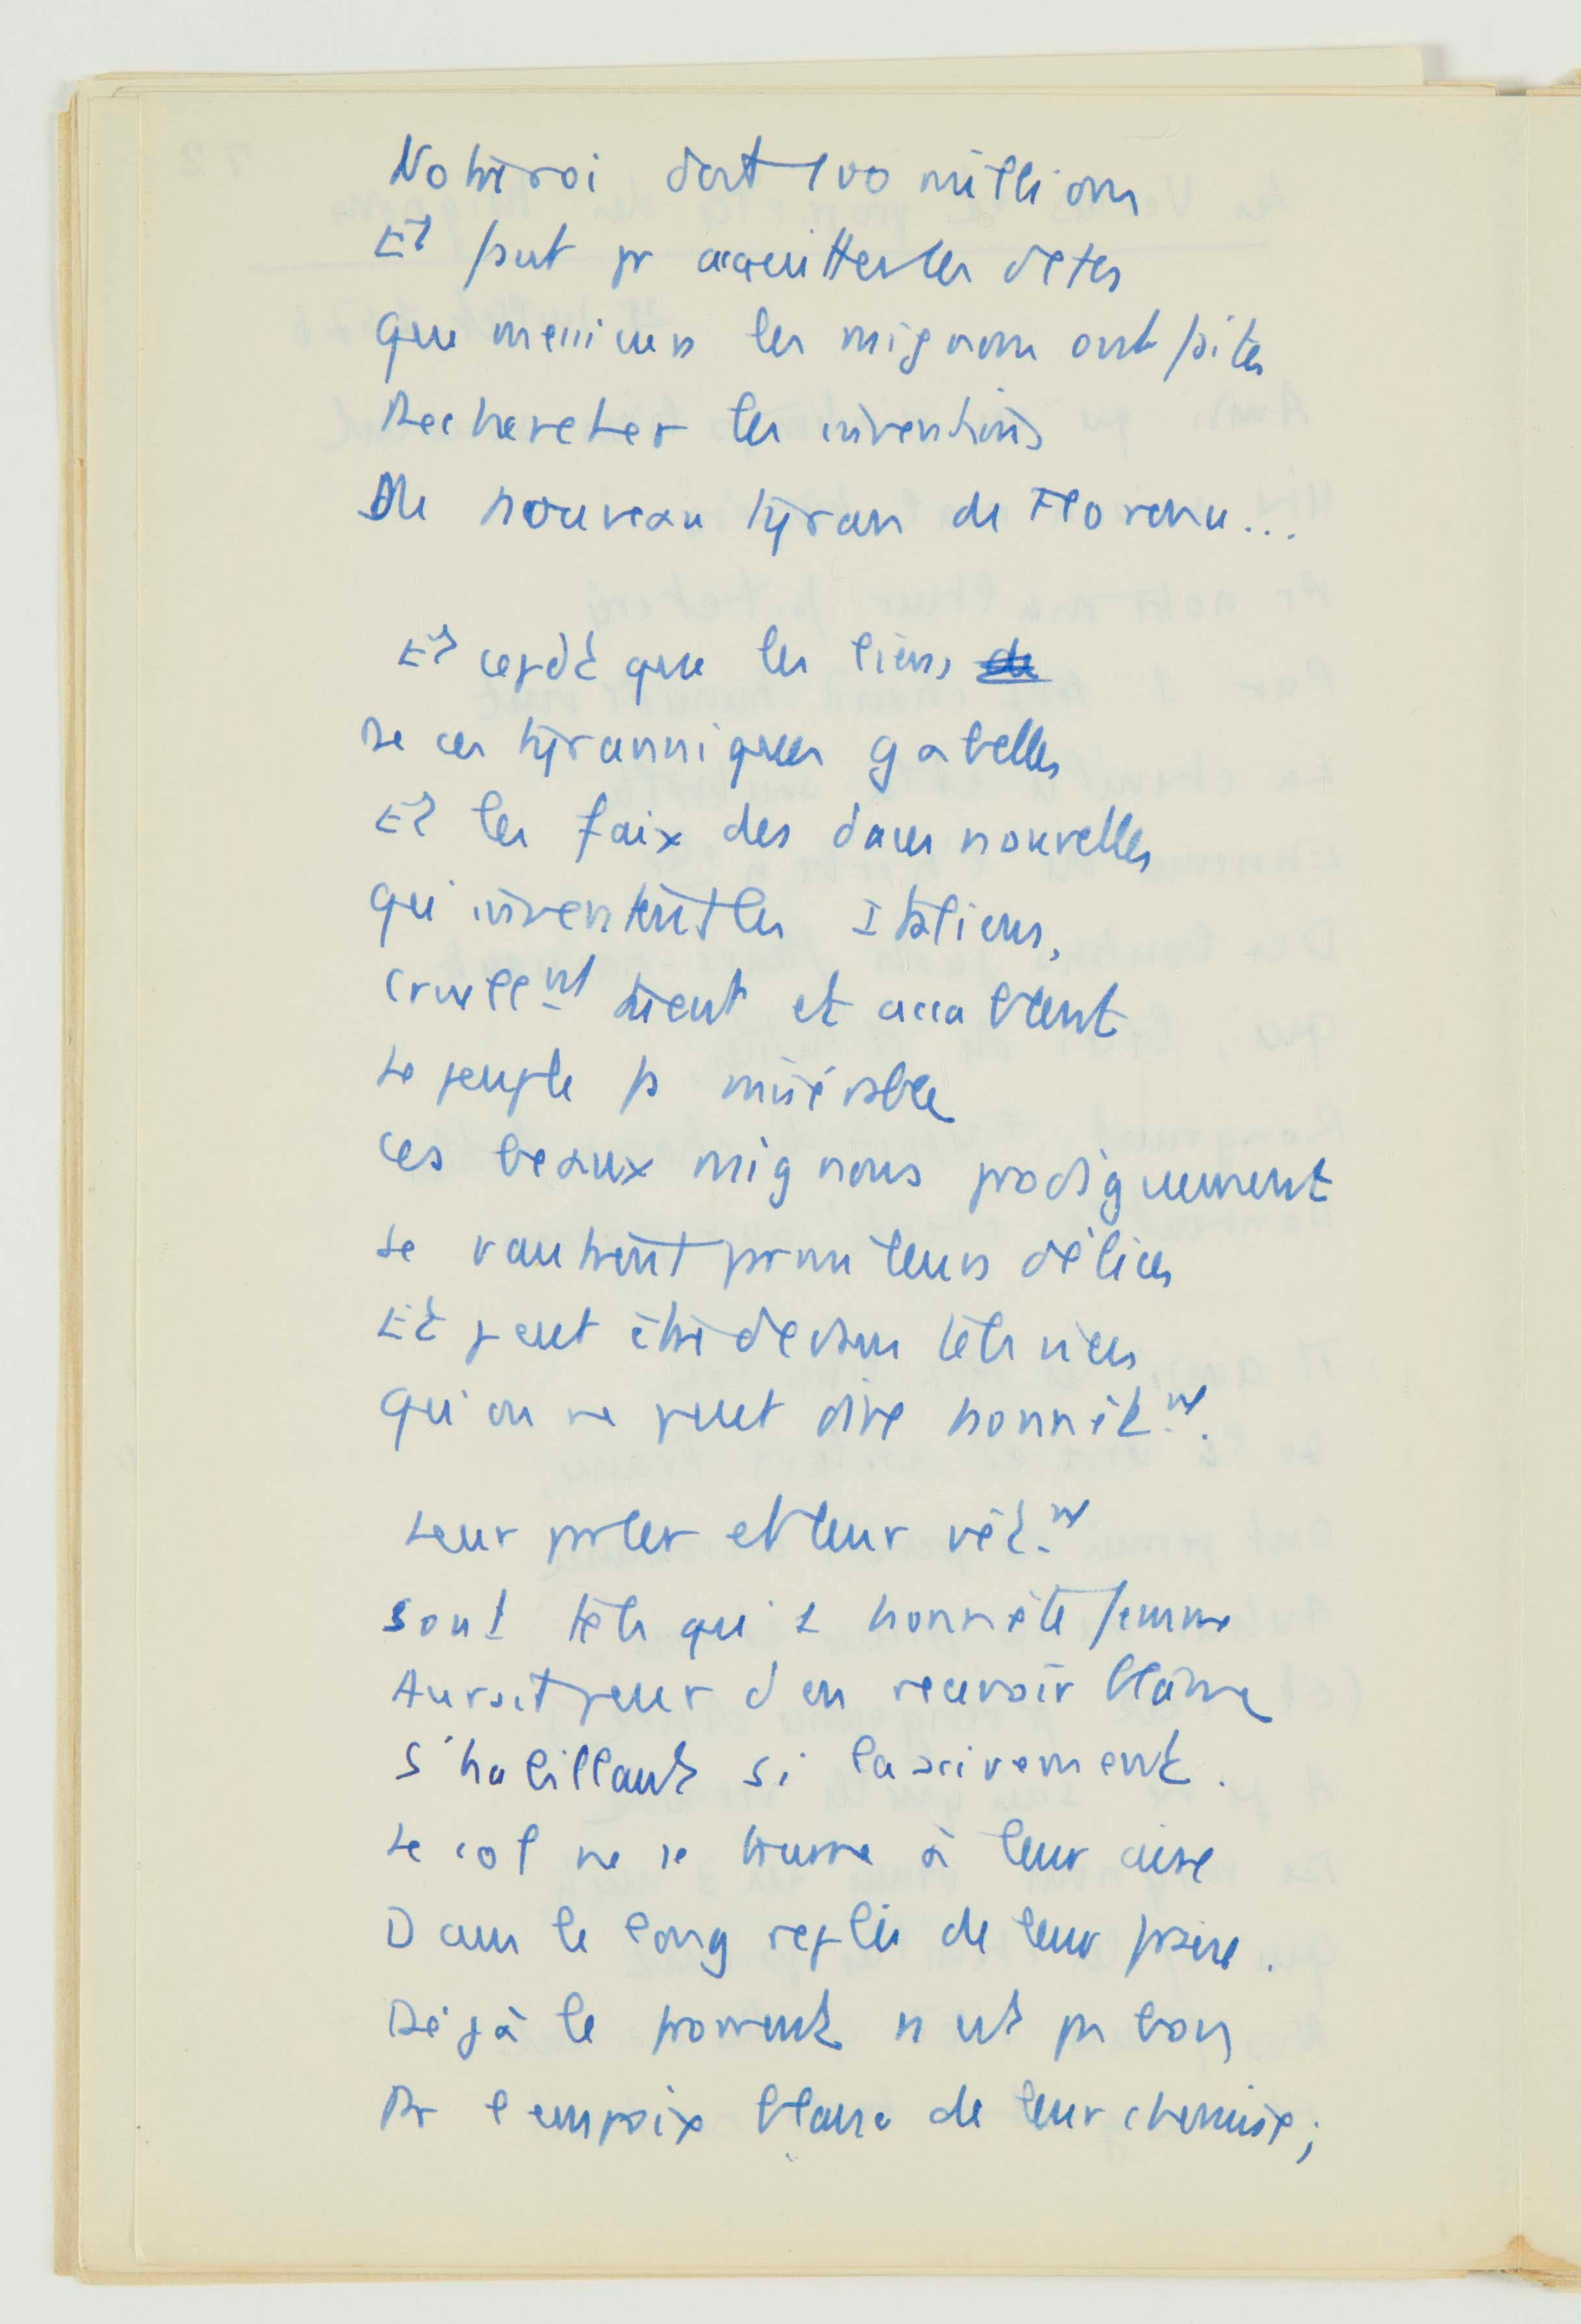 Notre roi doit 100 millions
Et faut pr acquitter les detes
Que messieurs les mignons ont faites
Rechercher les inventions
Du nouveau tyran de Florence...
Et cepdt que les liens de
De ces tyranniques gabelles
Et les faix des daces nouvelles
Qui inventent les Italiens,
Cruellemt lient et accablent
Le peuple fs misérable
Ces beaux mignons prodiguement
Se vautrent parmi leurs délices
Et peut être dedans tels vices
Qu'on ne peut dire honnêtemt.
Leur parler et leur vêtemt
Sont tels qu'1 honnête femme
Aurait peur d'en recevoir blâme
S'habillant si lascivement.
Le col ne se tourne à leur aise
Dans le long replis de leur fraise.
Déjà le froment n'est pas bon
Pr l'empoix blanc de leur chemise;